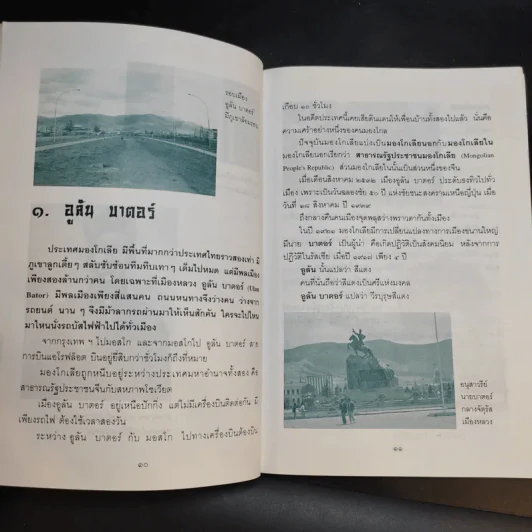 รอบเมือง
อูลัน บาตอร์
มีภูเขาล้อมรอบ
๑. อูลัน บาตอร์
ประเทศมองโกเลีย มีพื้นที่มากกว่าประเทศไทยราวสองเท่า มี
ภูเขาลูกเตี้ยๆ สลับซับซ้อนทึมทึบเทาๆ เต็มไปหมด แต่มีพลเมือง
เพียงสองล้านกว่าคน โดยเฉพาะที่เมืองหลวง อูลัน บาตอร์ (Ulan
Bator) มีพลเมืองเพียงสี่แสนคน ถนนหนทางจึงว่างคน ว่างจาก
รถยนต์ นาน ๆ จึงมีม้าลากรถผ่านมาให้เห็นสักคัน ใครจะไปไหน
มาไหนนั่งรถบัสไฟฟ้าไปได้ทั่วเมือง
จากกรุงเทพ ฯ ไปมอสโก และจากมอสโกไป อูลัน บาตอร์ สาย
การบินแอโรฟล็อต บินอยู่ยี่สิบกว่าชั่วโมงก็ถึงที่หมาย
มองโกเลียถูกหนีบอยู่ระหว่างประเทศมหาอำนาจทั้งสอง คือ
สาธารณรัฐประชาชนจีนกับสหภาพโซเวียต
เมืองอูลัน บาตอร์ อยู่เหนือปักกิ่ง แต่ไม่มีเครื่องบินติดต่อกัน มี
เพียงรถไฟ ต้องใช้เวลาสองวัน
ระหว่าง อูลัน บาตอร์ กับ มอสโก ไปทางเครื่องบินต้องบิน
๑๐
เกือบ ๑๐ ชั่วโมง
ในอดีตประเทศนี้เคยเสียดินแดนให้เพื่อนบ้านทั้งสองไปแล้ว นั่นคือ
ความเศร้าอย่างหนึ่งของคนมองโกล
ปัจจุบันมองโกเลียแบ่งเป็นมองโกเลียนอกกับมองโกเลียใน
มองโกเลียนอกเรียกว่า สาธารณรัฐประชาชนมองโกเลีย (Mongolian
People's Republic) ส่วนมองโกเลียในนั้นเป็นส่วนหนึ่งของจีน
เมื่อเดือนสิงหาคม ๒๕๓๒ เมืองอูลัน บาตอร์ ประดับธงทิวไปทั่ว
เมือง เพราะเป็นวันฉลองชัย ๕๐ ปี แห่งชัยชนะสงครามเหนือญี่ปุ่น เมื่อ
วันที่ ๑๘ สิงหาคม ปี ๑๙๓๙
ถึงกลางคืนคนเมืองจุดพลุสว่างพราวตากันทั้งเมือง
ในปี ๑๙๒๑ มองโกเลียมีการเปลี่ยนแปลงทางการเมืองขนานใหญ่
มีนาย บาตอร์ เป็นผู้นำ คือเกิดปฏิวัติเป็นสังคมนิยม หลังจากการ
ปฏิวัติในรัสเซีย เมื่อปี ๑๙๑๘ เพียง ๔ ปี
อูลัน นั้นแปลว่า สีแดง
คนที่นั่นถือว่าสีแดงเป็นศรีแห่งมงคล
อูลัน บาตอร์ แปลว่า วีรบุรุษสีแดง
อนุสาวรีย์
นายบาตอร์
กลางจัตุรัส
เมืองหลวง
๑๑